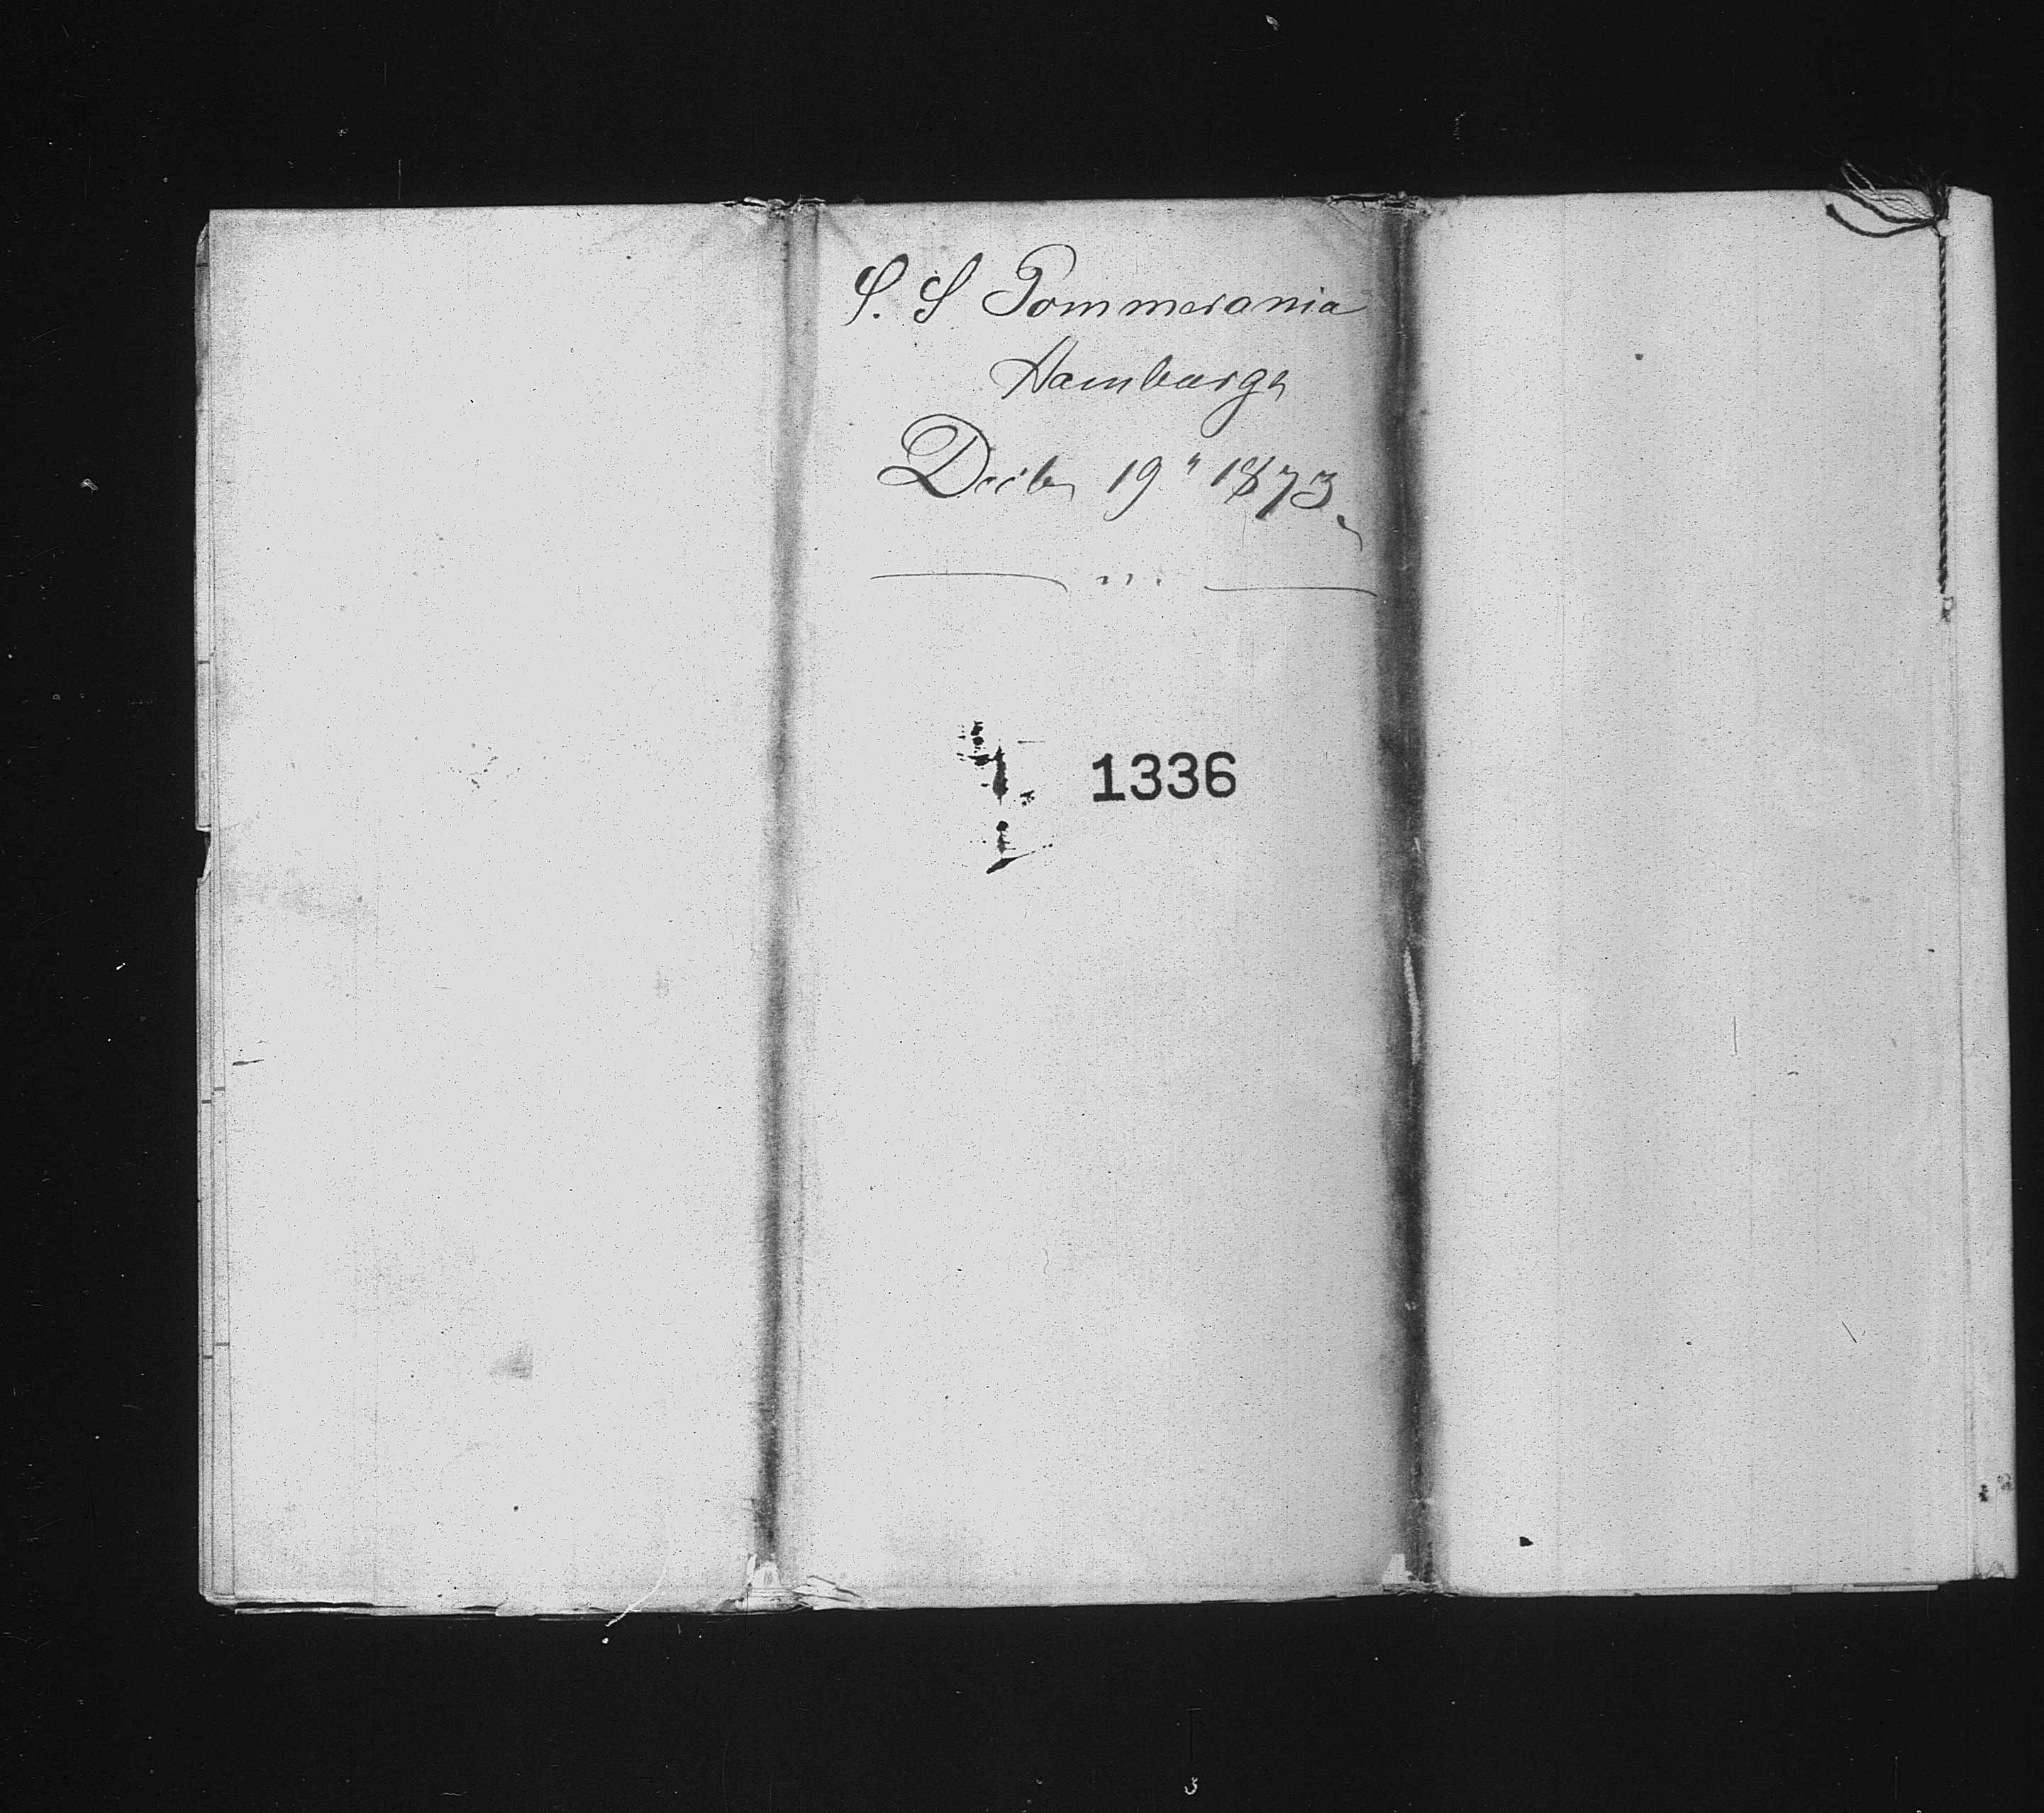 S. S Pommerania
Hamburg
Decbr 19" 1873.
1336